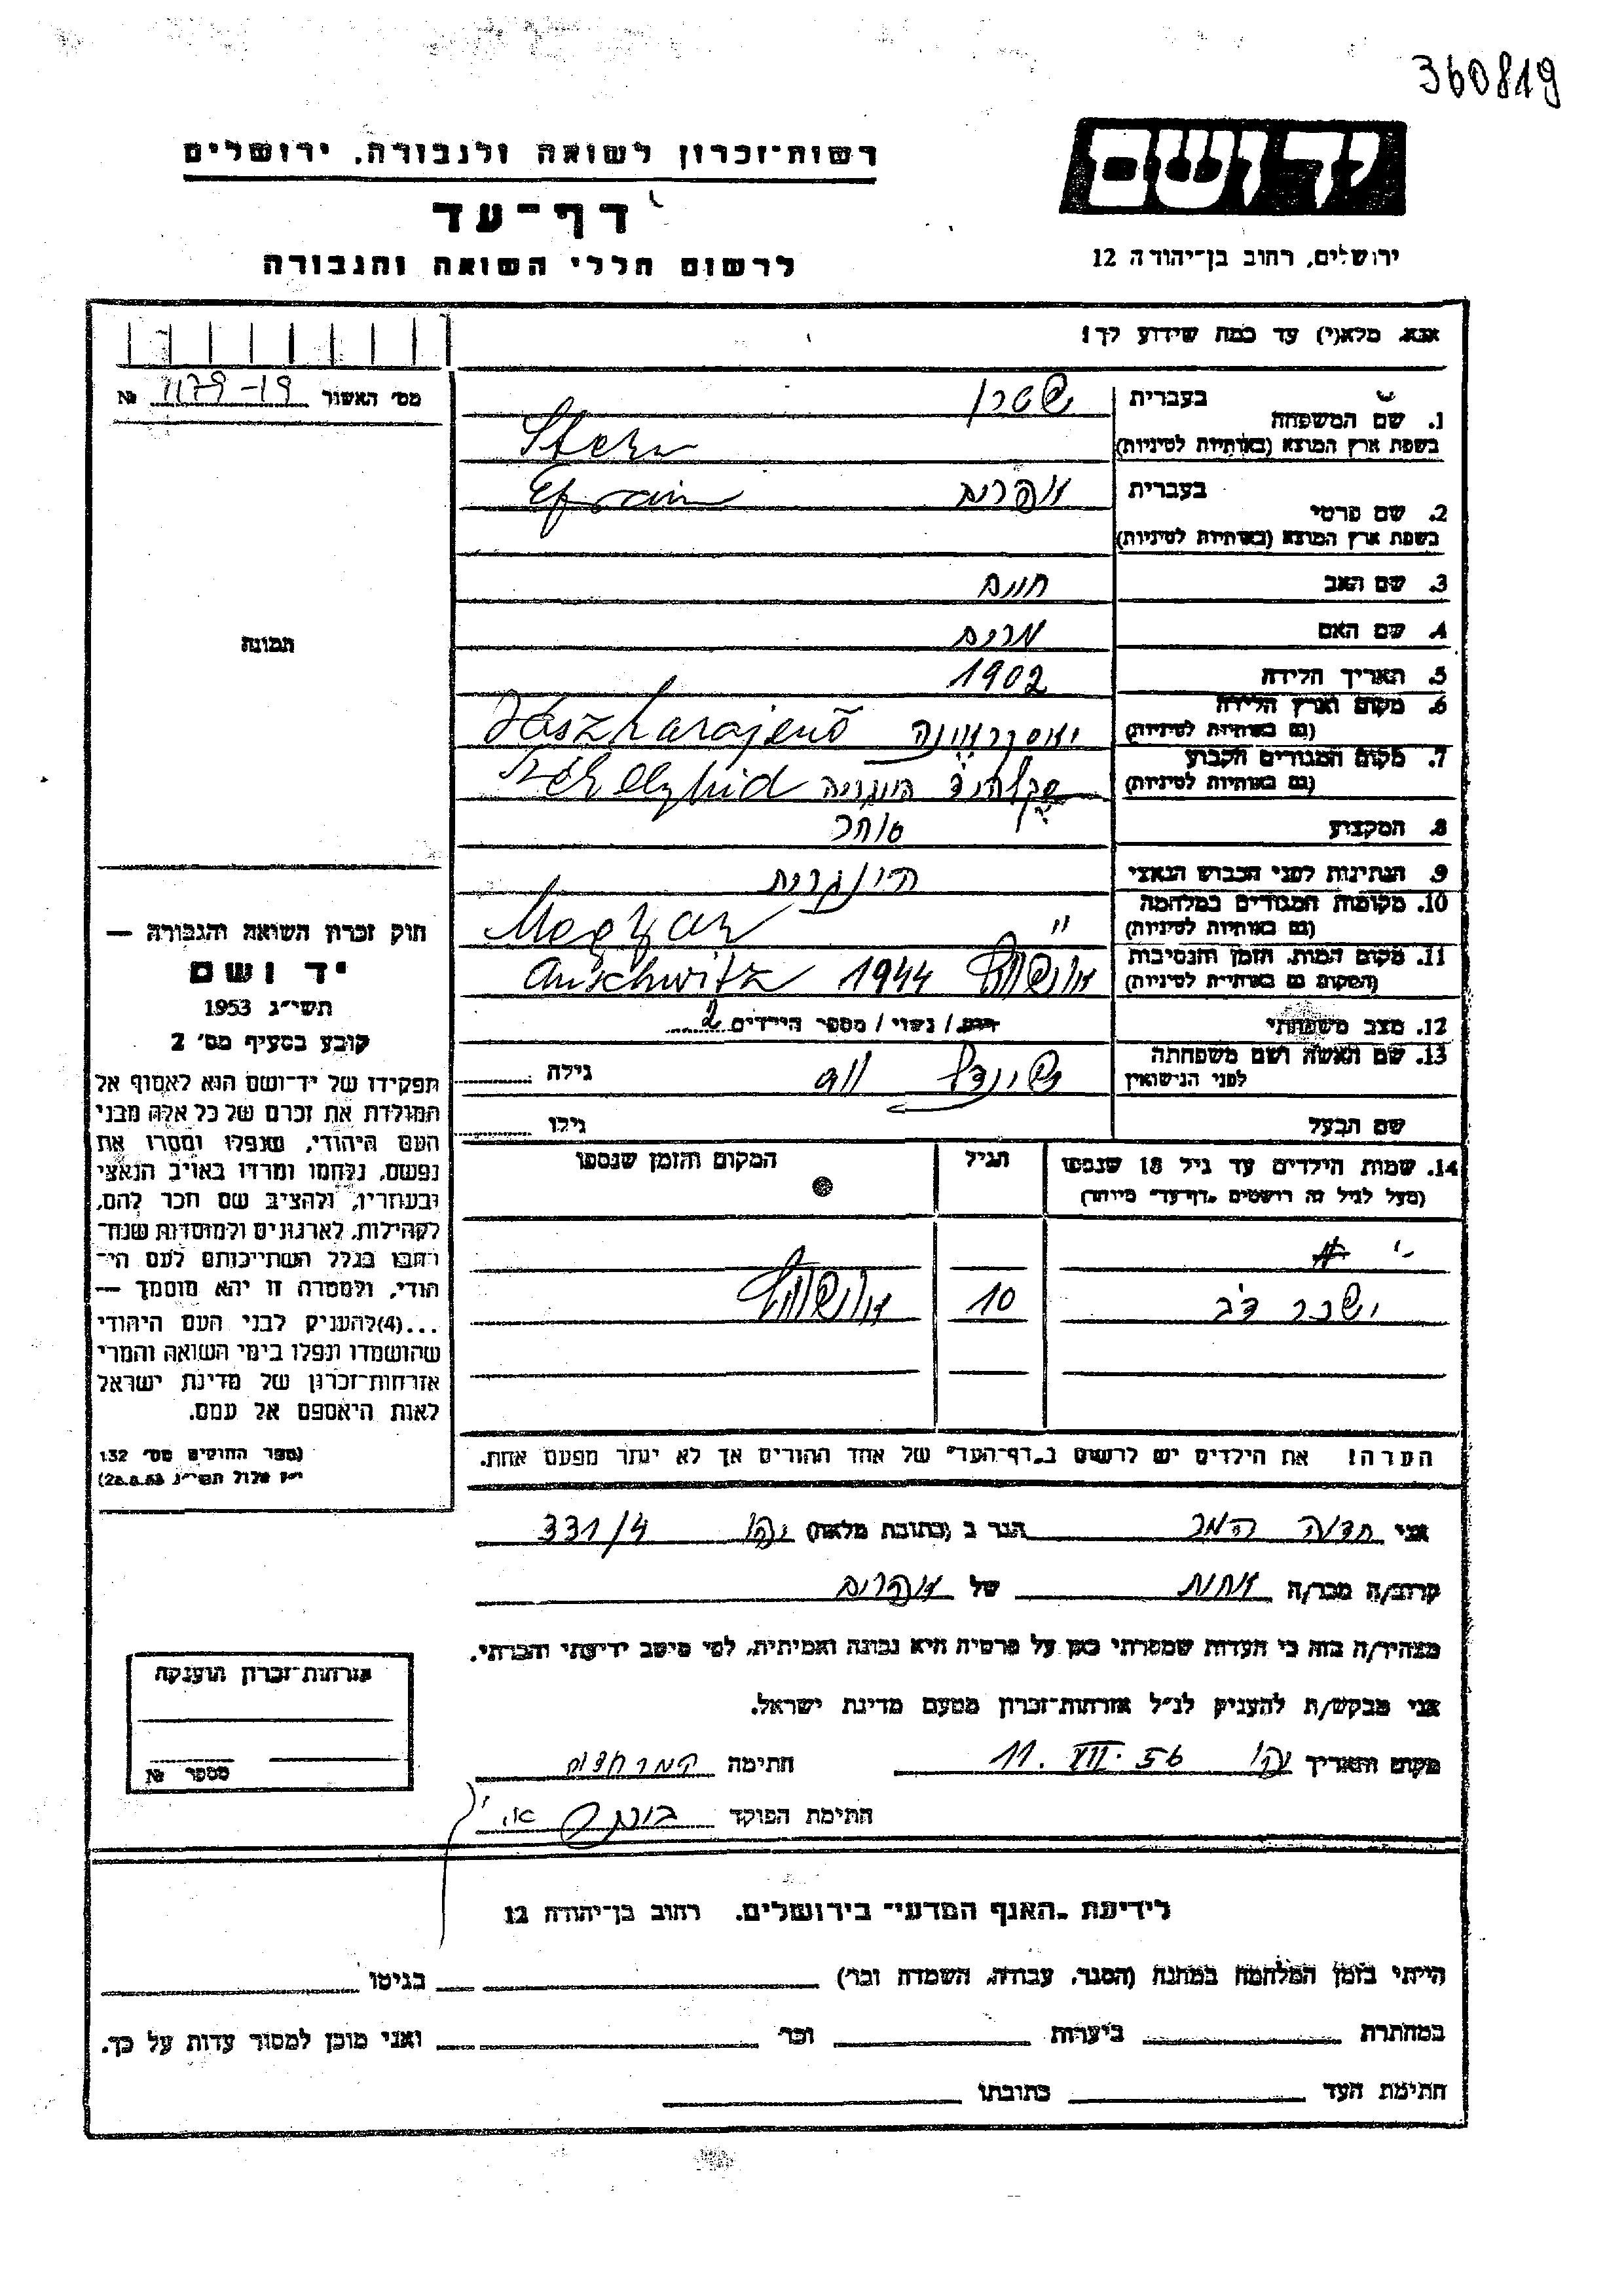 360819
יד ושם
רשות־זכרון לשואה ולגבורה, ירושלים
דף־עד
ירושלים, רחוב בן־יהודה 12
לרשום חללי השואה והגבורה
אנא, מלא(י) עד כמה שידוע לך!
מס' האשור 1179-19 №
1. שם המשפחה
בעברית שטרן
בשפת ארץ המוצא (באותיות לטיניות) Stern
2. שם פרטי
בעברית אפרים Efraim
בשפת ארץ המוצא (באותיות לטיניות)
3. שם האב חיים
4. שם האם מרים
5. תאריך הלידה 1902
6. מקום וארץ הלידה
(גם באותיות לטיניות) Jászkarajenő
7. מקום המגורים הקבוע
(גם באותיות לטיניות) הונגריה Székelyhid
8. המקצוע סוחר
9. הנתינות לפני הכבוש הנאצי הונגרית
10. מקומות המגורים במלחמה
(גם באותיות לטיניות) " Magyar
11. מקום המות, הזמן והנסיבות
(המקום גם באותיות לטיניות) אושוויץ 1944 Auschwitz
12. מצב משפחתי רווק / נשוי / מספר הילדים 2
13. שם האשה ושם משפחתה
לפני הנישואין שיינדל גילה
שם הבעל גילו
14. שמות הילדים עד גיל 18 שנספו
(מעל לגיל זה רושמים "דף־עד" מיוחד)
הגיל
המקום והזמן שנספו
ישכר דב 10 אושוויץ
הערה! את הילדים יש לרשום ב"דף־העד" של אחד ההורים אך לא יותר מפעם אחת.
תמונה
חוק זכרון השואה והגבורה —
יד ושם
תשי"ג 1953
קובע בסעיף מס' 2
תפקידו של יד־ושם הוא לאסוף אל
המולדת את זכרם של כל אלה מבני
העם היהודי, שנפלו ומסרו את
נפשם, נלחמו ומרדו באויב הנאצי
ובעוזריו, ולהציב שם וזכר להם,
לקהילות, לארגונים ולמוסדות שנח־
רבו בגלל השתייכותם לעם הי־
הודי, ולמטרה זו יהא מוסמך —
...(4)להעניק לבני העם היהודי
שהושמדו ונפלו בימי השואה והמרי
אזרחות־זכרון של מדינת ישראל
לאות היאספם אל עמם.
(ספר החוקים מס' 132
י"ז אלול תשי"ג 28.8.53)
אני הגר ב (כתובת מלאה) עכו 331/4
קרוב/ה מכר/ה אחות של אפרים
מצהיר/ה בזה כי העדות שמסרתי כאן על פרטיה היא נכונה ואמיתית, לפי מיטב ידיעתי והכרתי.
אני מבקש/ת להעניק לנ"ל אזרחות־זכרון מטעם מדינת ישראל.
מקום ותאריך עכו 11. VII. 56 חתימה
חתימת הפוקד
אזרחות־זכרון הוענקה
מספר №
לידיעת "האגף המדעי" בירושלים, רחוב בן־יהודה 12
הייתי בזמן המלחמה במחנה (הסגר, עבודה, השמדה וכו') בגיטו
במחתרת ביערות וכו' ואני מוכן למסור עדות על כך.
חתימת העד כתובתו